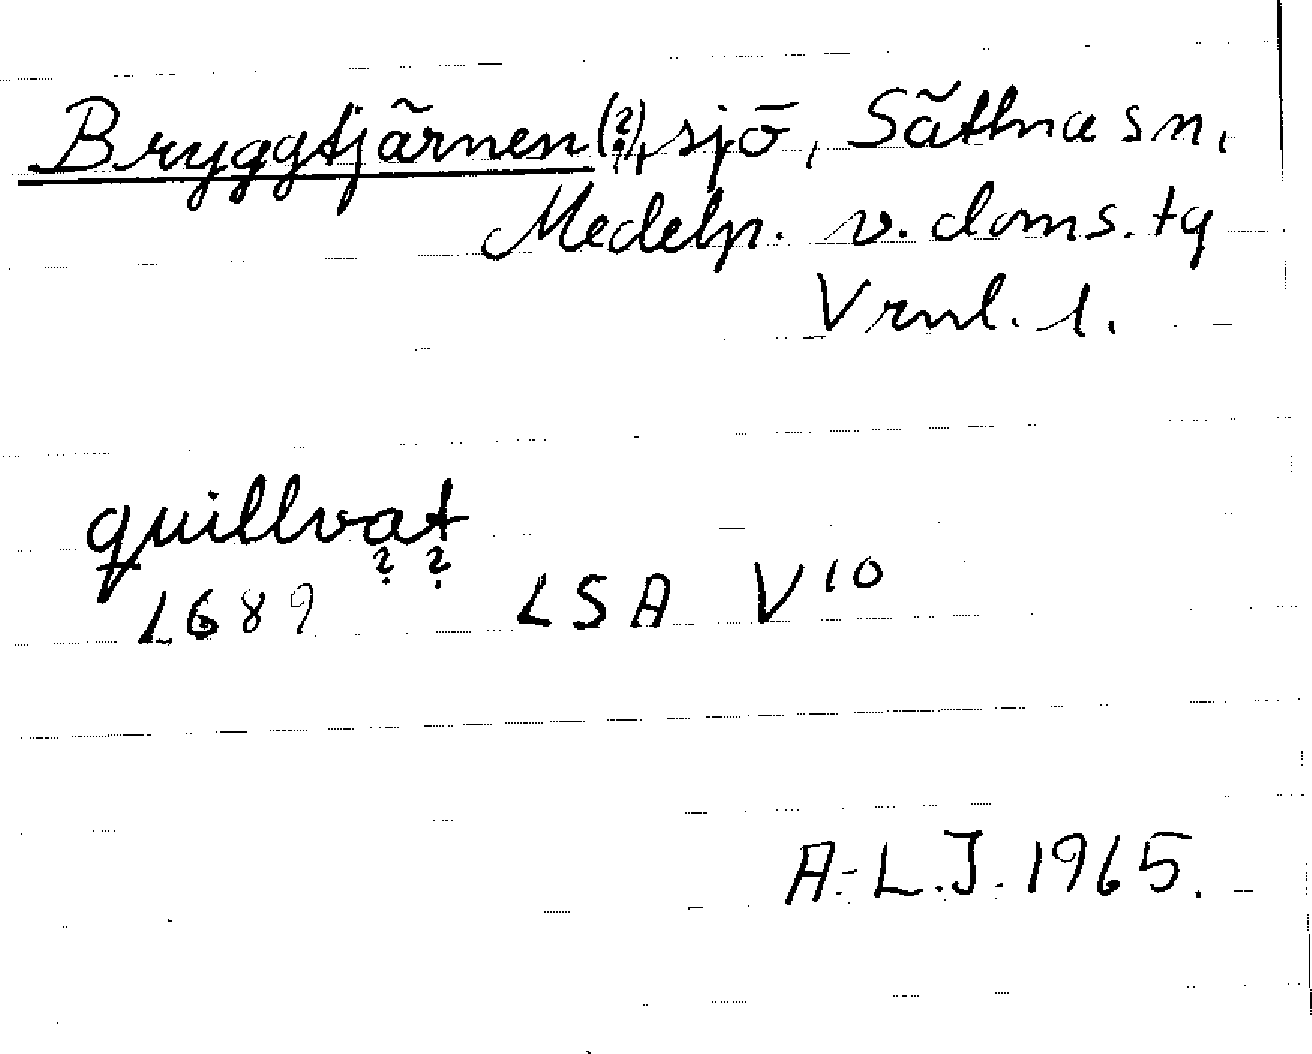 Bryggtjärnen(?), sjö, Sättna sn,
Medelp. v. doms. tg
Vrnl. l.
quillvat
? ?
1689 LSA V10
A-L.J. 1965.